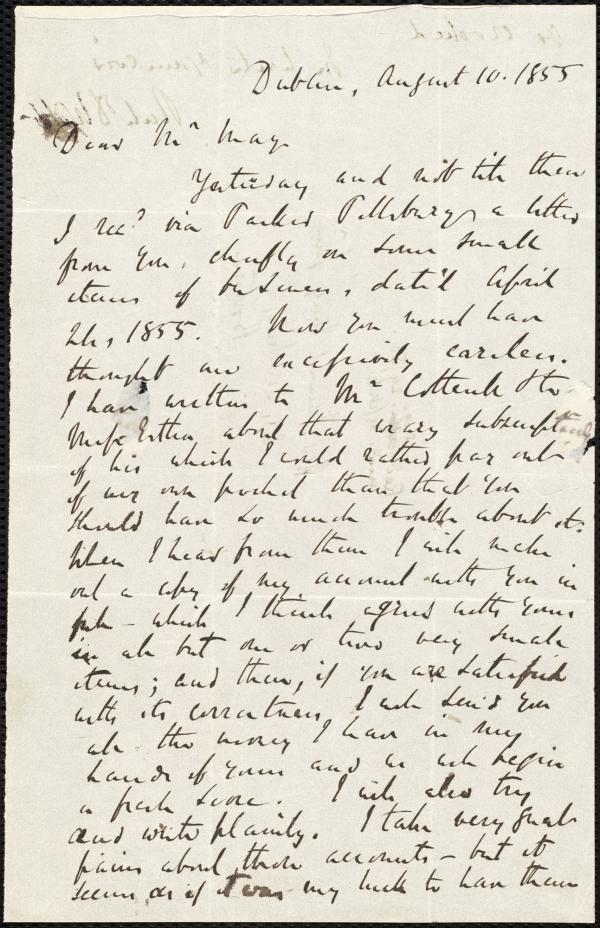 Dublin, August 10. 1855
Dear Mr May
Yesterday and not till then
I recd via Parker Pillsbury a letter
from you, chiefly on some small
items of business, dated April
24, 1855. Now you must have
thought me excessively careless.
I have written to Mr to
Miss Estlin about that crazy subscription
of his which I would rather pay out
of my own pocket than that you
should have so much trouble about it.
When I hear from them I will make
out a copy of my account with you in
full - which I think agrees with yours
in all but one or two very small
items; and then, if you are satisfied
with its correctness I will send you
all the money I have in my
hands of yours and we will begin
a fresh score. I will also try
and write plainly. I take very great
pains about these accounts - but it
seems as if it was my luck to have them